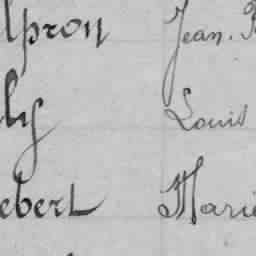 lpron Jean. P
ly Louis
ebert Marie